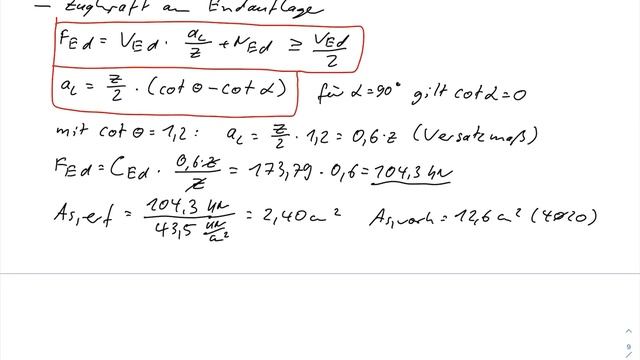 — Zugkraft am Endauflage
F_Ed = V_Ed · a_L/z + N_Ed ≥ V_Ed/2
a_L = z/2 · (cot θ - cot α) für α = 90° gilt cot α = 0
mit cot θ = 1,2 : a_L = z/2 · 1,2 = 0,6 · z (Versatzmaß)
F_Ed = C_Ed · 0,6·z/z = 173,79 · 0,6 = 104,3 kN
As,erf = 104,3 kN / 43,5 kN/cm² = 2,40 cm² As,vorh = 12,6 cm² (4⌀20)
9